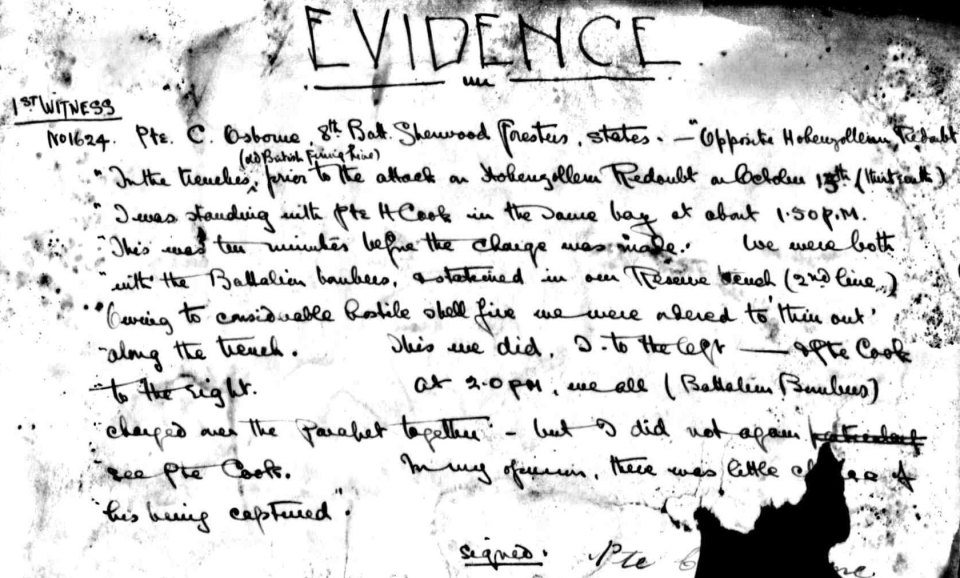 EVIDENCE
1ST WITNESS
No 1624. Pte. C. Osborne 8th Batt. Sherwood Foresters, states. - "Opposite Hohenzollern Redoubt
(old British Firing Line)
"In the trenches, prior to the attack on Hohenzollern Redoubt on October 13th (thirteenth)
"I was standing with Pte H Cook in the same bay at about 1.50 P.M.
"This was ten minutes before the charge was made. We were both
"with the Battalion bombers, & stationed in our Reserve trench (2nd line)
"Owing to considerable hostile shell fire we were ordered to 'thin out'
"along the trench. This we did, I - to the left — & Pte Cook
"to the right. At 2.0 pm, we all (Battalion Bombers)
"charged over the parapet together - but I did not again
"see Pte Cook. In my opinion, there was little of
"his being captured".
signed. Pte